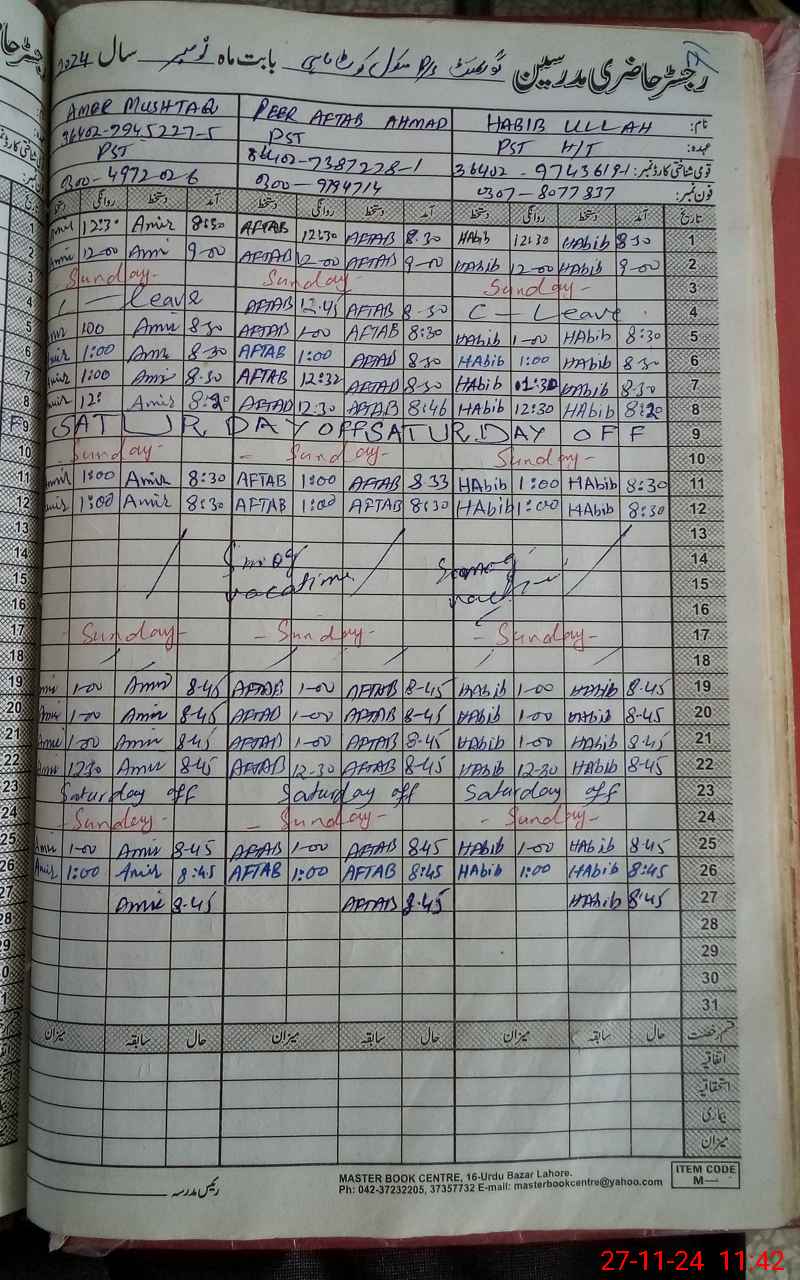 رجسٹر حاضری مدرسین گورنمنٹ P/S سکول کوٹ بابت ماہ نومبر سال 2024
نام: HABIB ULLAH PEER AFTAB AHMAD AMER MUSHTAQ
عہدہ: PST H/T PST PST
قومی شناختی کارڈ نمبر: 36402-9743619-1 36402-7387278-1 36402-7945227-5
فون نمبر: 0307-8077837 0300-9794714 0300-4972026
تاریخ آمد دستخط روانگی دستخط آمد دستخط روانگی دستخط آمد دستخط روانگی دستخط
1 8:30 HAbib 12:30 HAbib 8.30 AFTAB 12:30 AFTAB 8:30 Amir 12:30
2 9-00 HAbib 12-00 HAbib 9-00 AFTAB 12-00 AFTAB 9-00 Amir 12-00
3 Sunday- Sunday Sunday-
4 C-Leave 8-30 AFTAB 12.45 AFTAB C-Leave
5 8:30 HAbib 1-00 HAbib 8:30 AFTAB 1-00 AFTAB 8-30 Amir 100
6 8-30 HAbib 1:00 HAbib 8-30 AFTAB 1:00 AFTAB 8-30 Amir 1:00
7 8.30 HAbib 01:30 HAbib 8-30 AFTAB 12:32 AFTAB 8.30 Amir 1:00
8 8:20 HAbib 12:30 HAbib 8-46 AFTAB 12.30 AFTAB 8:20 Amir 12:
9 SATURDAY OFF SATURDAY OFF
10 Sunday- - Sunday- Sunday-
11 8:30 HAbib 1:00 HAbib 8.33 AFTAB 1:00 AFTAB 8:30 Amir 1:00
12 8:30 HAbib 1:00 HAbib 8:30 AFTAB 1:00 AFTAB 8:30 Amir 1:00
13
14 Smog
15 vacation
16
17 - Sunday- - Sunday- - Sunday-
18
19 8-45 HAbib 1-00 HAbib 8-45 AFTAB 1-00 AFTAB 8-45 Amir 1-00
20 8-45 HAbib 1-00 HAbib 8-45 AFTAB 1-00 AFTAB 8-45 Amir 1-00
21 8.45 HAbib 1-00 HAbib 8-45 AFTAB 1-00 AFTAB 8-45 Amir 1-00
22 8-45 HAbib 12-30 HAbib 8-45 AFTAB 12-30 AFTAB 8-45 Amir 1230
23 Saturday off Saturday off Saturday off
24 - Sunday- - Sunday- - Sunday-
25 8-45 HAbib 1-00 HAbib 845 AFTAB 1-00 AFTAB 8-45 Amir 1-00
26 8:45 HAbib 1:00 HAbib 8:45 AFTAB 1:00 AFTAB 8:45 Amir 1:00
27 8-45 HAbib 8.45 AFTAB 8-45 Amir
28
29
30
31
قسم رخصت حال سابقہ میزان حال سابقہ میزان حال سابقہ میزان
اتفاقیہ
استحقاقیہ
بیماری
میزان
رئیس مدرسہ
MASTER BOOK CENTRE, 16-Urdu Bazar Lahore.
Ph: 042-37232205, 37357732 E-mail: masterbookcentre@yahoo.com
ITEM CODE
M—
27-11-24 11:42